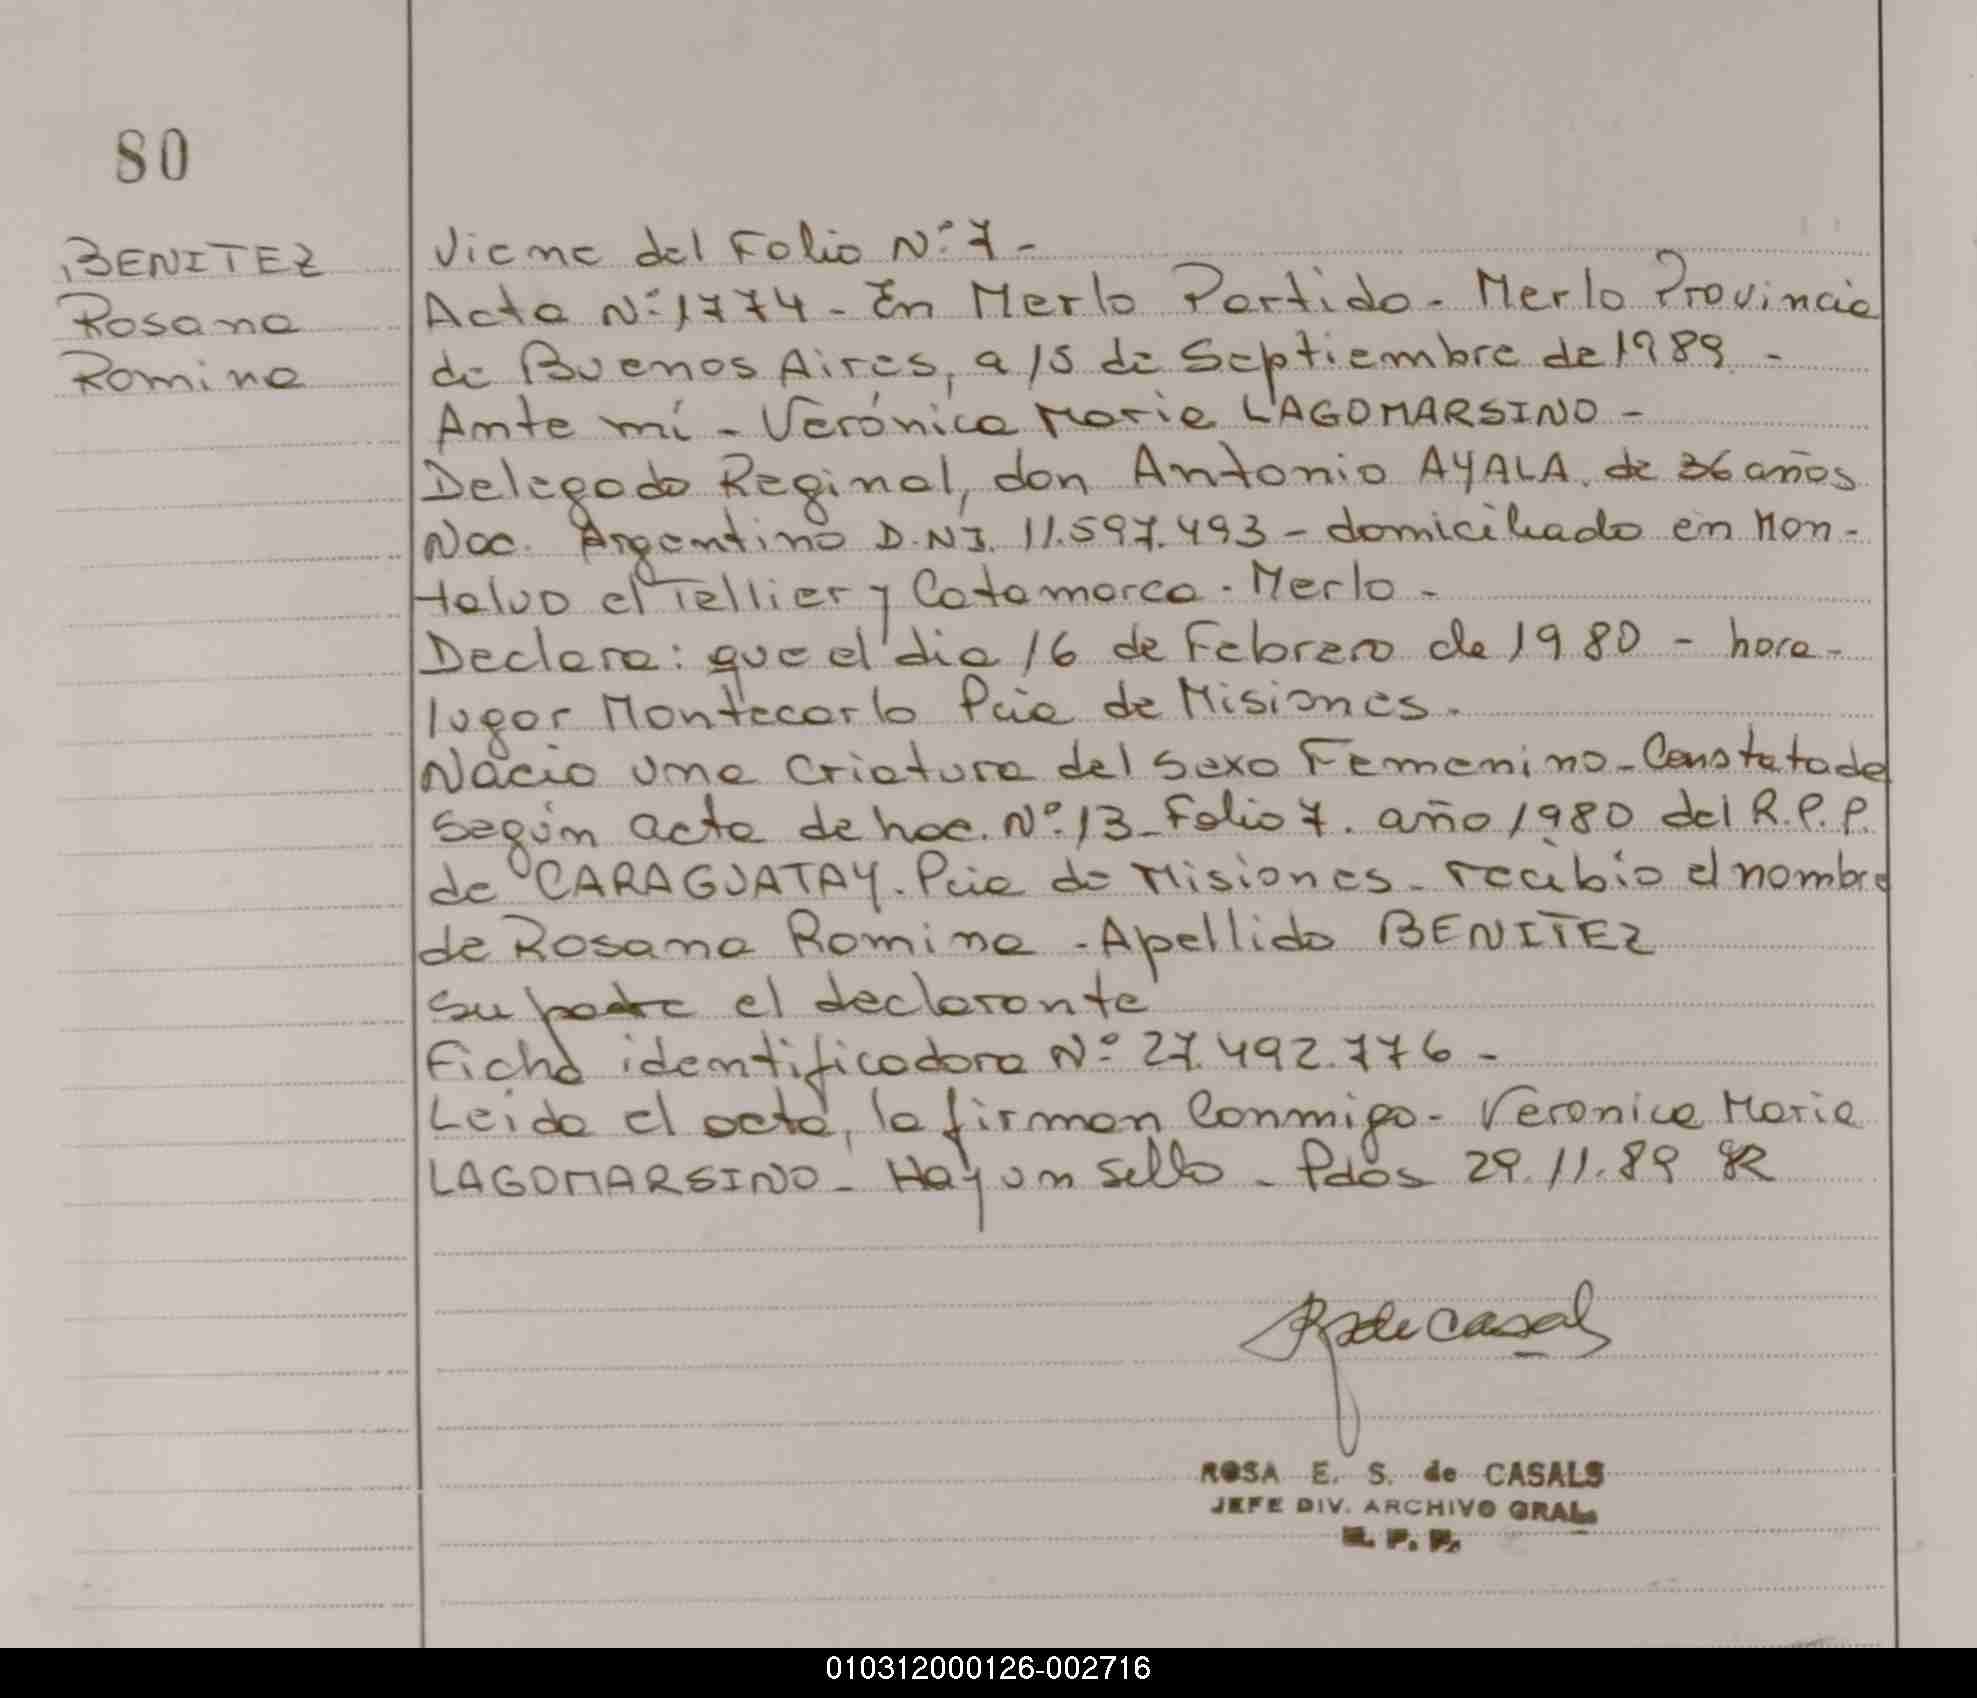 80
BENITEZ
Rosana
Romina
Viene del Folio Nº 7 -
Acta Nº 1774 - En Merlo Partido - Merlo Provincia
de Buenos Aires, a 15 de Septiembre de 1989 -
Ante mí - Verónica Maria LAGOMARSINO -
Delegado Reginal, don Antonio AYALA. de 36 años
Nac. Argentino D.N.I. 11.597.493 - domiciliado en Mon-
talvo e/ Tellier y Catamarca - Merlo -
Declara: que el dia 16 de Febrero de 1980 - hora -
lugar Montecarlo Pcia de Misiones.
Nacio una criatura del sexo Femenino - Constatada
según acta de nac. Nº 13 - Folio 7. año 1980 del R.P.P.
de CARAGUATAY. Pcia de Misiones - recibio el nombre
de Rosana Romina - Apellido BENITEZ
su padre el declarante
Ficha identificadora Nº 27.492.776 -
Leida el acta, la firman Conmigo - Veronica Maria
LAGOMARSINO - Hay un sello - Pdas 29.11.89
R de Casals
ROSA E. S. de CASALS
JEFE DIV. ARCHIVO GRAL.
R. P. P.
010312000126-002716